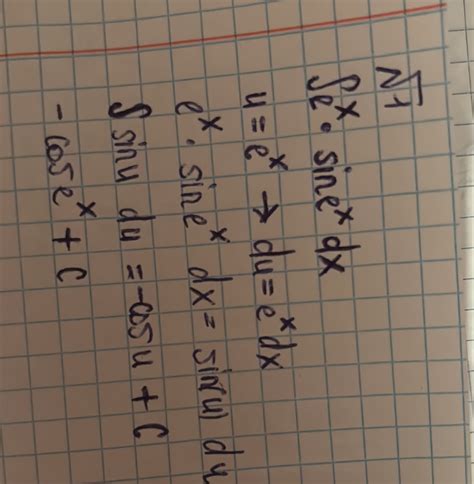 №1
∫eˣ · sin eˣ dx
u = eˣ → du = eˣ dx
eˣ · sin eˣ dx = sin(u) du
∫ sin u du = -cos u + C
- cos eˣ + C